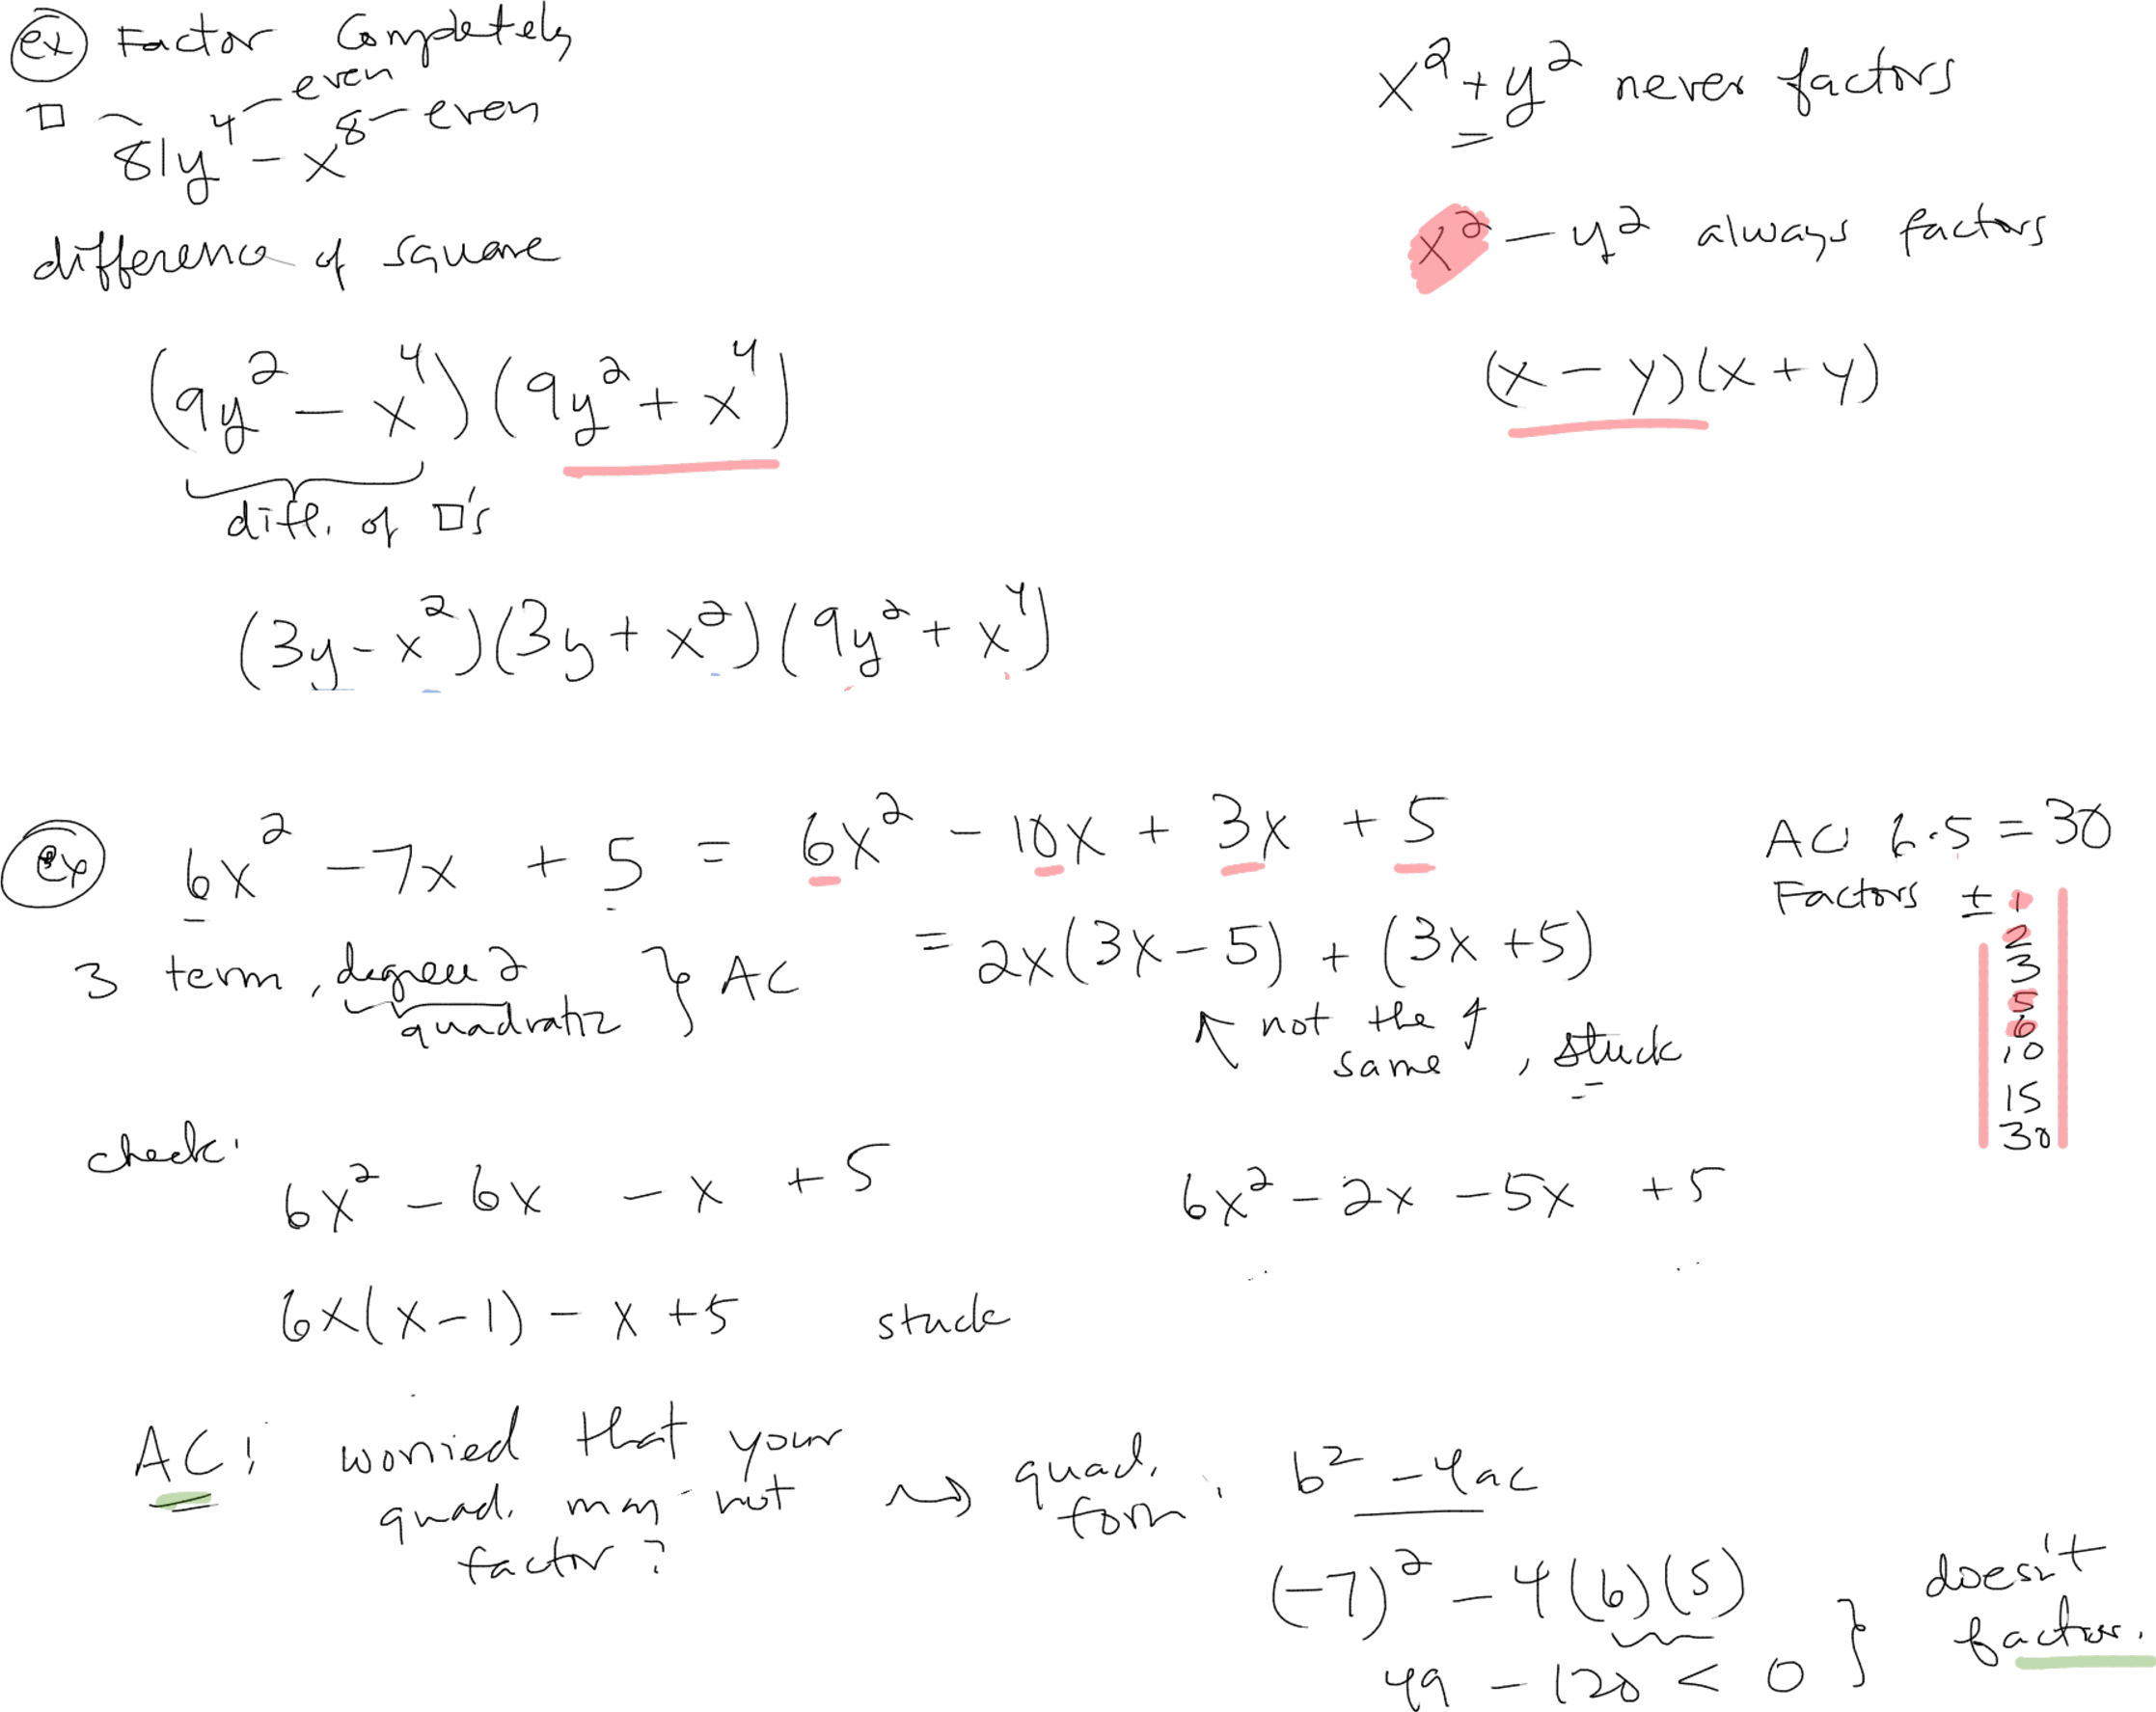 ex Factor Completely
□ 81y⁴ - x⁸
even
even
difference of square
(9y² - x⁴)(9y² + x⁴)
diff. of □'s
(3y - x²)(3y + x²)(9y² + x⁴)
x² + y² never factors
x² - y² always factors
(x - y)(x + y)
ex 6x² - 7x + 5 = 6x² - 10x + 3x + 5
= 2x(3x - 5) + (3x + 5)
↖ not the ↑
same , stuck
3 term, degree 2 } AC
quadratic
AC: 6·5 = 30
Factors ± 1
2
3
5
6
10
15
30
check:
6x² - 6x - x + 5
6x(x - 1) - x + 5 stuck
6x² - 2x - 5x + 5
AC: worried that your
quad. may not
factor?
⇝ quad.
form : b² - 4ac
(-7)² - 4(6)(5)
49 - 120 < 0 } doesn't
factor.